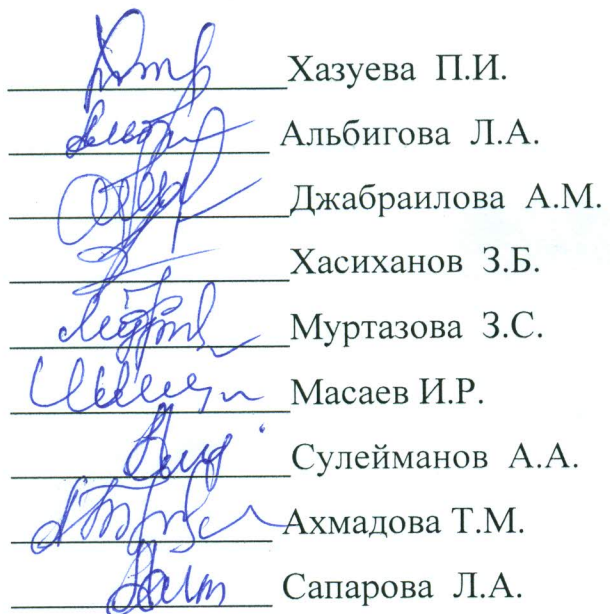 Хазуева П.И.
Альбигова Л.А.
Джабраилова А.М.
Хасиханов З.Б.
Муртазова З.С.
Масаев И.Р.
Сулейманов А.А.
Ахмадова Т.М.
Сапарова Л.А.